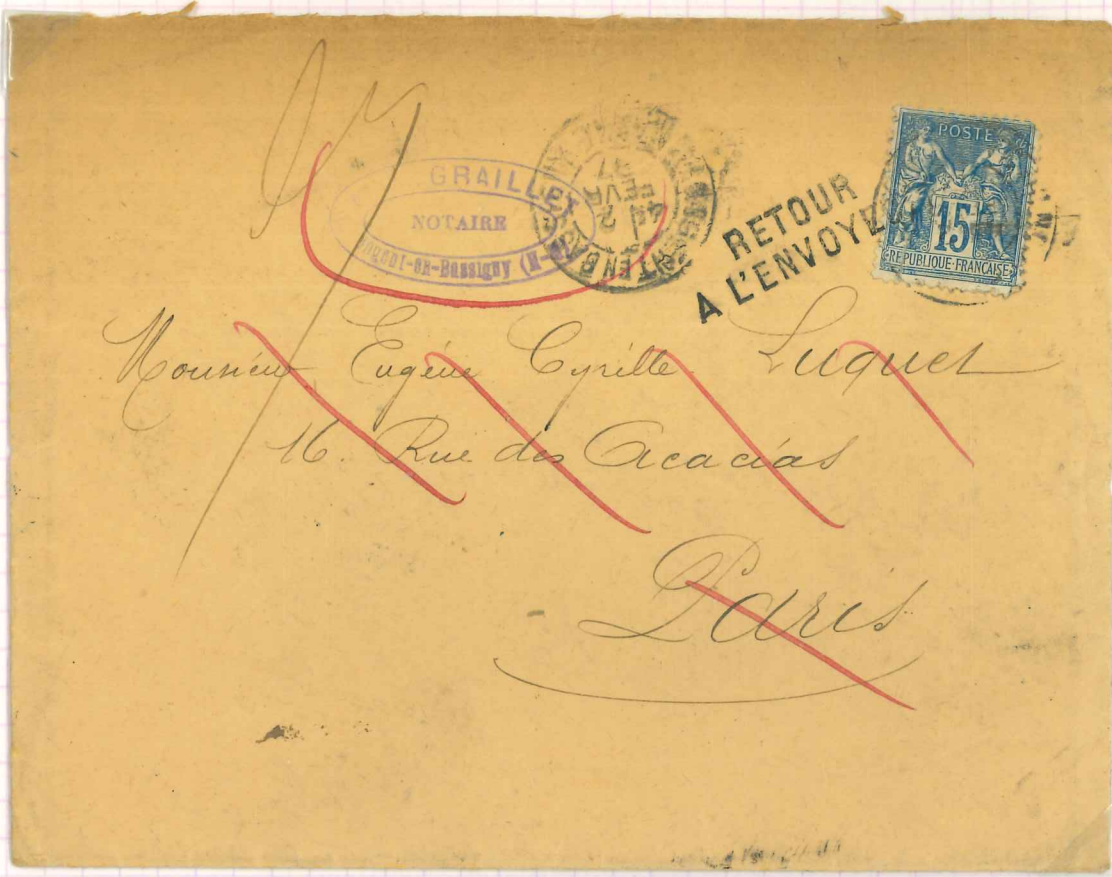 GRAILLET
NOTAIRE
en-Bassigny (H-
4E
2
FEVR
97
RETOUR
A L'ENVOYE
POSTE
15
REPUBLIQUE FRANÇAISE
Monsieur Eugéne Cyrille Luquet
16. Rue des Acacias
Paris